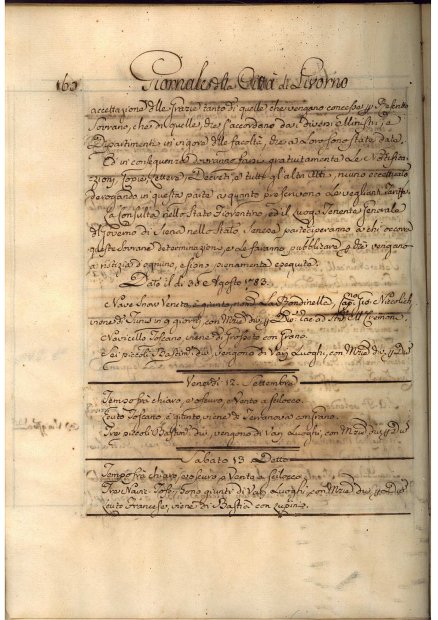 160 Giornale della Città di Livorno
accettazione delle Grazie tanto di quelle che vengano concesse Reseritto
Sovrano, che di quelle, che s'accordano da diversi Ministri, e
Dipartimenti in vigore delle facoltà, che a Loro sono state date.
E in conseguenza dovranno farsi gratuitamente le Notifica-
zioni, Copie, Lettere, e Decreti, e tutti gl'altri Atti, niuno eccettuato
derogando in questa parte a quanto prescrivono le veglianti Tariffe.
La Consulta nello Stato Fiorentino, ed il Luogo Tenente Generale
di Governo di Siena nello Stato Senese parteciperanno a chi occorre
queste Sovrane determinazioni, e le faranno pubblicare, vengano
a notizia di ognuno, e sian pienamente eseguite.
Dato il dì Agosto 1783.
Nave Snow Veneta, è giunta La Rondinella, Cap.no Gio:
viene di Tunis in giorni, con ad
Navicello Toscano, viene di Grosseto con Grano.
E piccoli Bastim.ti div: vengono di Varj Luoghi, con Mrzie div:
Venerdì 12. Settembre
Tempo frà chiaro, e oscuro, Vento a scilocco.
Leuto Toscano è giunto, viene di Terranova con grano.
Trè piccoli Bastim.ti div: vengono di Varj Luoghi, con Mrzie div:
Sabato 13 Detto
Tempo frà chiaro, e oscuro, e Vento a Scilocco.
Tre Navi: Tosc: sono giunti di Varj Luoghi, con Mrzie div:
Leuto Francese, viene di Bastia con Lupini.